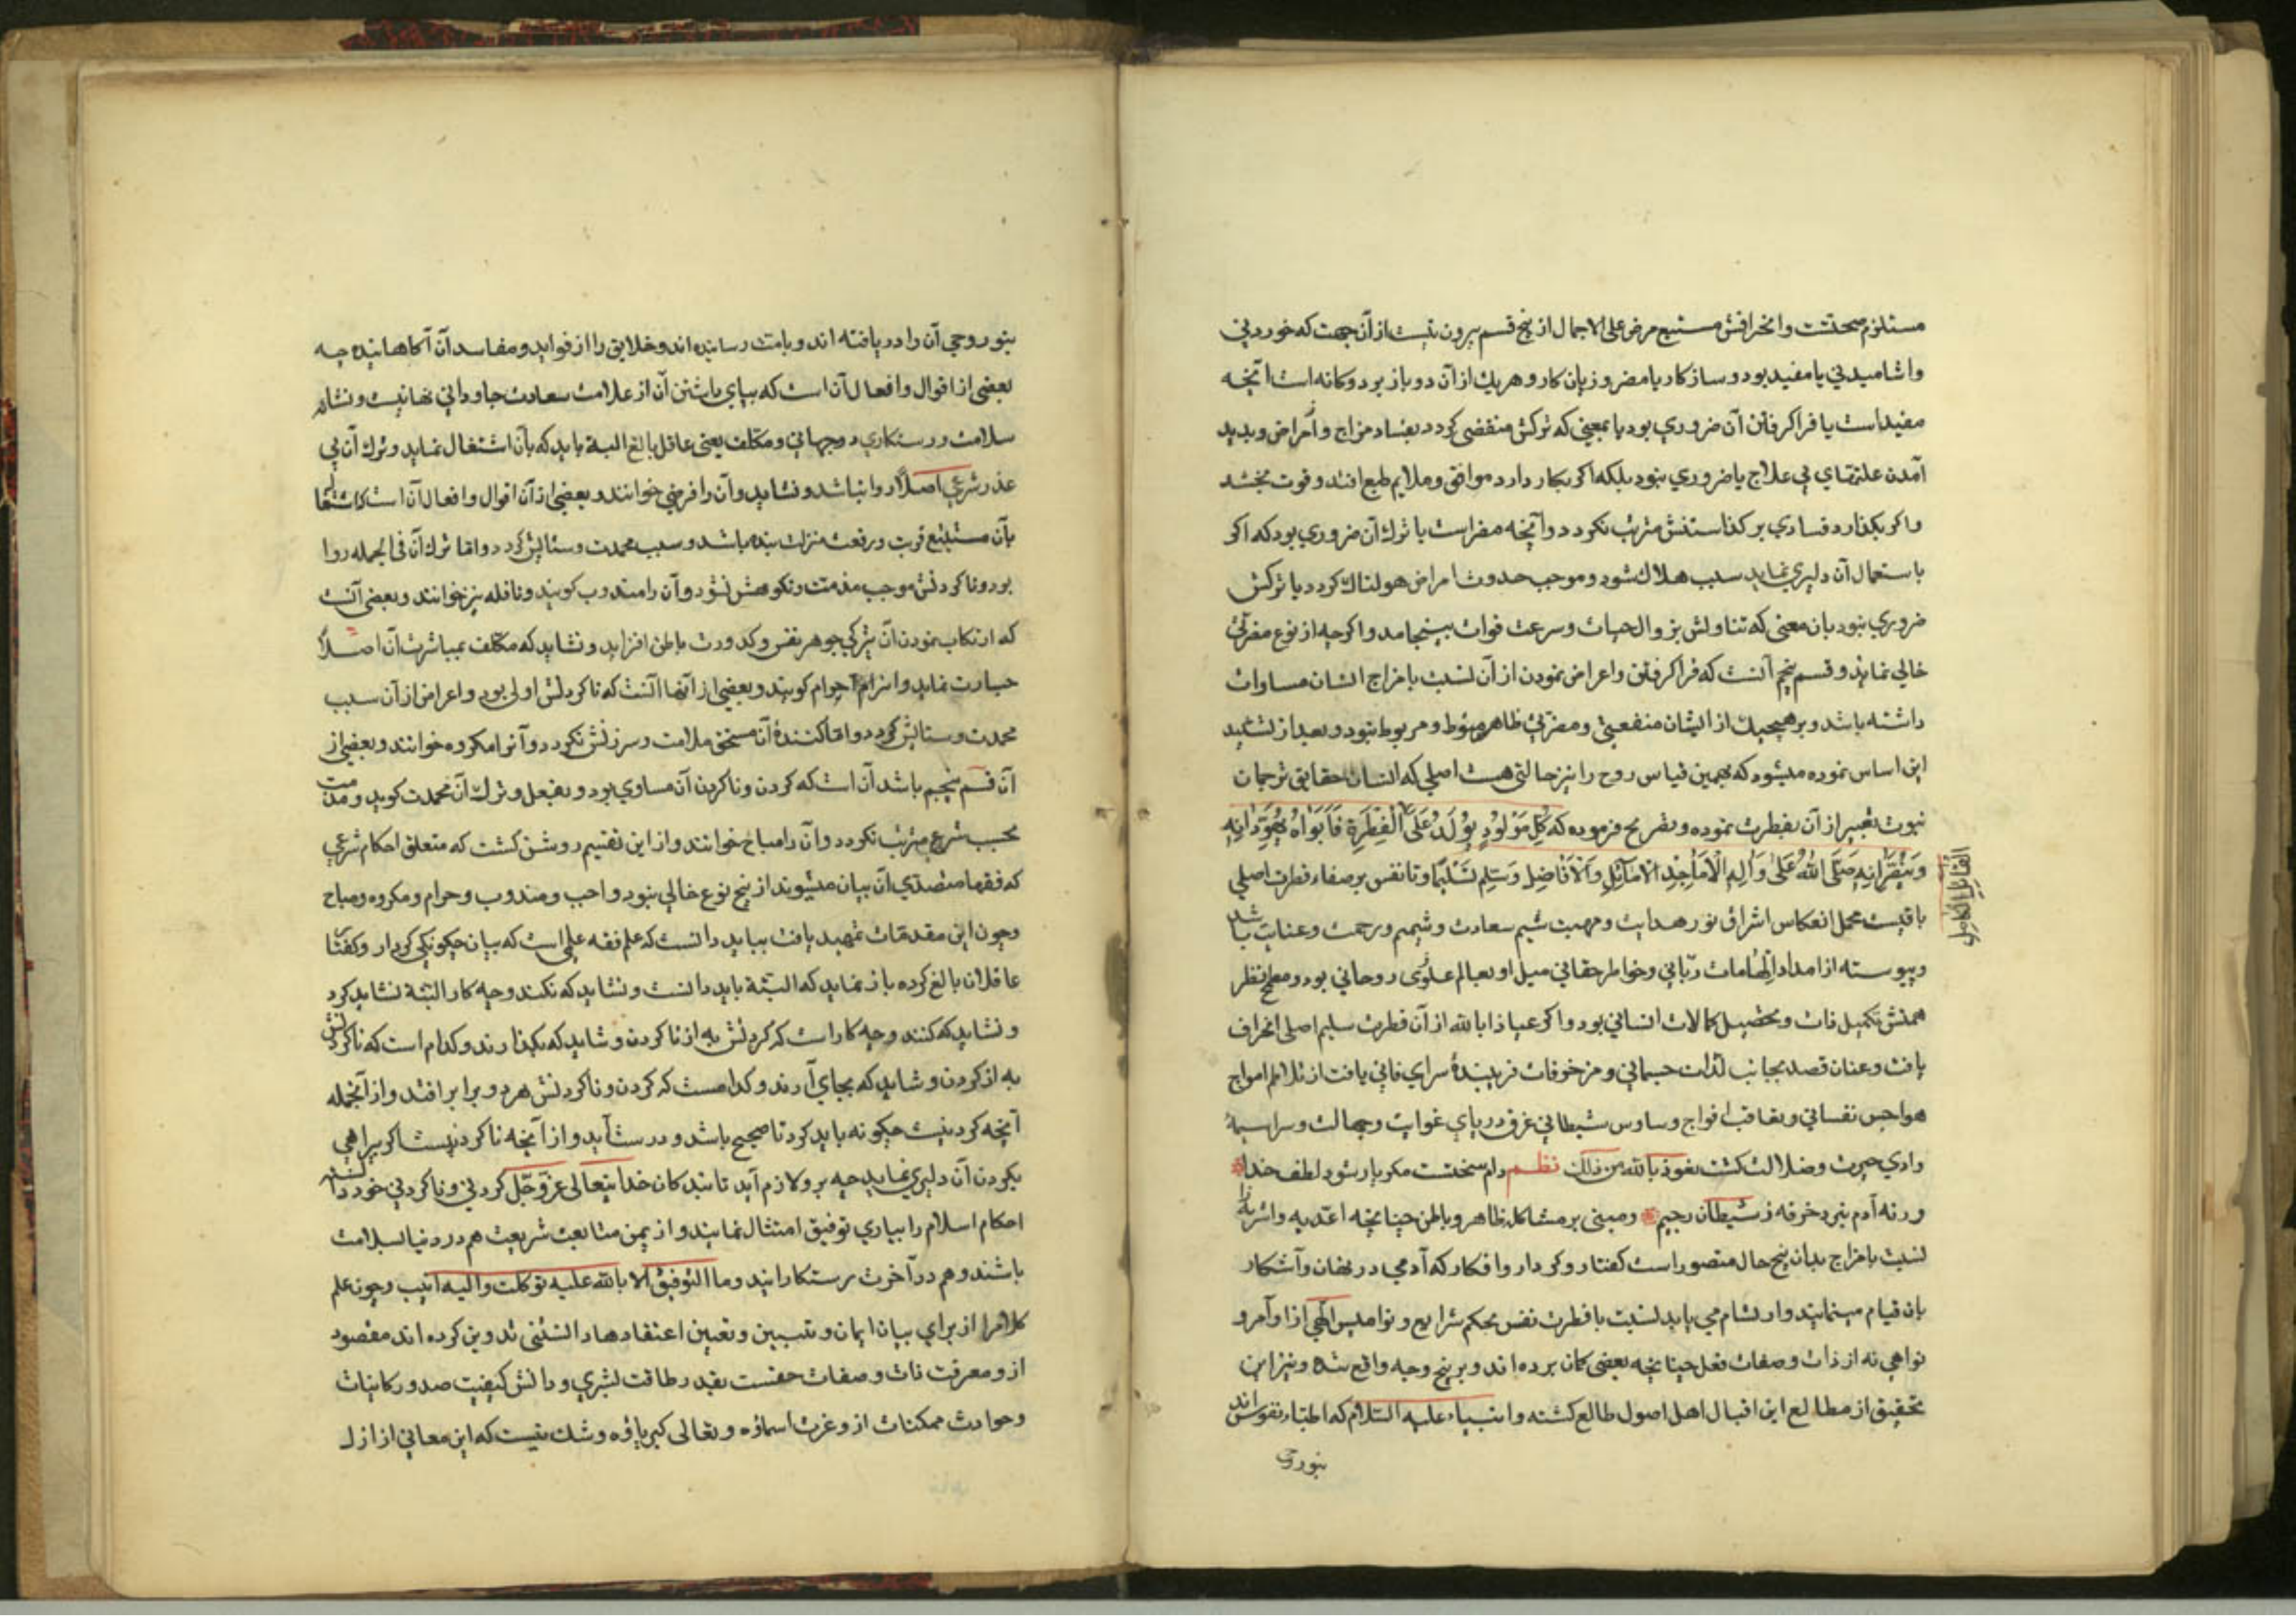 مستلزم صحتست وانحرافش مستتبع مرض على الاجمال از پنج قسم بيرون نيست از آن جهت كه خوردنى
واشاميدنى يا مفيد بود وسازكار يا مضر وزيان كار وهريك ازآن دو باز بر دوكانه است آنچه
مفيداست يا فراكرفتن آن ضروري بود يا بمعنى كه تركش منقضى كردد بفساد مزاج وأمراض وبديد
آمدن علتهاي بي علاج يا ضروري نبود بلكه اكر بكار دارد موافق وملايم طبع افتد وقوت بخشد
واكر بكذارد فسادي بر كذاستنش مترتب نكردد وآنچه مضراست يا ترك آن ضروري بود كه اكر
باستعمال آن دليري نمايد سبب هلاك شود وموجب حدوث امراض هولناك كردد يا تركش
ضروري نبود بان معنى كه تناولش بزوال حيات وسرعت فوات بينجامد واكرچه از نوع مضرتى
خالى نماند وقسم پنجم آنست كه فراكرفتن واعراض نمودن از آن نسبت با مزاج انسان مساوات
داشته باشد وبرهيچيك از ايشان منفعتى ومضرتى ظاهر منوط ومربوط نبود وبعد از تشييد
اين اساس نموده ميشود كه بهمين قياس روح را نيز حالتى هست اصلي كه انسان حقايق ترجمان
نبوت تعبير از آن بفطرت نموده وتصريح فرموده كه كُل مَوْلُودٍ يُولَدُ عَلَى الْفِطْرَةِ فَأَبَوَاهُ يُهَوِّدَانِهِ
وَيُنَصِّرَانِهِ صَلَّى اللهُ عَلَىْ وَآلِهِ الْاَمَاجِدِ الاَمَاثِلِ وَالْاَفَاضِلِ وَسَلّم تَسْلِيمًا وتا نفس بر صفاء فطرت اصلي
الفَضَايِل الكَامِل
باقيست محل انعكاس اشراق نور هدايت ومهبت نسيم سعادت وشميم ورحمت وعنايت باشد
وپيوسته از امداد اِلهَامات ربّاني وخواطر حقاني ميل او بعالم علوى روحاني بود ومطمح نظر
همتش تكميل ذات وتحصيل كمالات انساني بود واكر عياذا بالله از آن فطرت سليم اصلى انحراف
يافت وعنان قصد بجانب لذات جسماني ومزخوفات فريبندهٔ سراي فاني يافت از تلاطم امواج
هواجس نفساني وتعاقب افواج وساوس شيطاني غرق درياي غوايت وجهالت وسراسيمهٔ
وادي حيرت وضلالت كشت نعوذ بالله من ذلك نظــم دام سختست مكر يار شود لطف خدا
ورنه آدم نبرد خرفه ز شيطان رجيم ومبنى بر مشاكله ظاهر وباطن چنانچه اغذيه واشربه را
نسبت با مزاج بدان پنج حال متصوراست كفتار وكردار وافكار كه آدمي در نهان وآشكار
بان قيام مينمايند وارتسام مي يابد نسبت با فطرت نفس بحكم شرايع ونواميس الهي از اوآمر و
نواهي نه از ذات وصفات فعل چنانچه بعضى كمان برده اند وبر پنج وجه واقع شده ونيز اين
تحقيق از مطالع اين اقبال اهل اصول طالع كشته وانبياء عليه السلام كه اطباء نفوس اند
بنور وحى
بنور وحي آن را دريافته اند وبامت رسانيده اند وخلايق را از فوايد ومفاسد آن آكاهانيده چه
بعضى از اقوال وافعال آن است كه بپاي باشتن آن از علامت سعادت جاوداني نهانيست ونشانه
سلامت ورستكاري دوجهاني ومكلف يعني عاقل بالغ البته بايد كه بآن اشتغال نمايد وترك آن بي
عذر شرعي اصلاً روا نباشد ونشايد وآن را فرض خوانند وبعضى از آن اقوال وافعال آن است كه اشتغال
بآن مستتبع قربت ورفعت منزلت بنده باشد وسبب محمدت وستايش كردد واما ترك آن في الجمله روا
بود وناكردنش موجب مذمت ونكوهش نشود وآن را مندوب كويند ونافله نيز خوانند وبعضى آنست
كه ارتكاب نمودن آن تيركي جوهر نفس وكدورت باطن افزايد ونشايد كه مكلف بمباشرت آن اصـلاً
جسارت نمايد وانرا حرام كويند وبعضي از آنها آنست كه ناكردنش اولى بود واعراض از آن سبب
محمدت وستايش كردد واما كنندهٔ آن مستحق ملامت وسرزنش نكردد وآنرا مكروه خوانند وبعضي از
آن قسم پنجم باشد آن است كه كردن وناكردن آن مساوي بود وبفعل وترك آن محمدت كويد ومذمت
بحسب شرع مترتب نكردد وآن را مباح خوانند واز اين تقسيم روشن كشت كه متعلق احكام شرعي
كه فقها متصدي آن بيان ميشوند از پنج نوع خالي نبود واجب ومندوب وحرام ومكروه ومباح
وچون اين مقدمات تمهيد يافت ببايد دانست كه علم فقه علمي است كه بيان چكونكي كردار وكفتار
عاقلان بالغ كرده باز نمايد كه البتّه بايد دانست ونشايد كه نكنند وچه كار البتّه نشايد كرد
ونشايد كه كنند وچه كار است كه كردنش به از ناكردن وشايد كه بكذارند وكدام است كه ناكردنش
به از كردن وشايد كه بجاي آرند وكدامست كه كردن وناكردنش هر دو برابر افتد واز آنجمله
آنچه كردنيست چكونه بايد كرد تا صحيح باشد ودرست آيد واز آنچه ناكردنيست اكر بيراهي
بكردن آن دليري نمايد چه برو لازم آيد تا بندكان خدايتعالى عزّ وجَّل كردني وناكردني خود دانسته
احكام اسلام را بياري توفيق امتثال نمايند واز يمن متابعت شريعت هم در دنيا بسلامت
باشند وهم در آخرت رستكارايند وما التوفيق الا بالله عليه توكلت واليه انيب وچون علم
كلام را از براي بيان ايمان وتبيين وتعيين اعتقادها دانستنى تدوين كرده اند مقصود
از ومعرفت ذات وصفات حقست بقدر طاقت بشري ودانش كيفيت صدور كاينات
وحوادث ممكنات از وعزت اسماؤه وتعالى كبرياؤه وشك نيست كه اين معاني از ازل